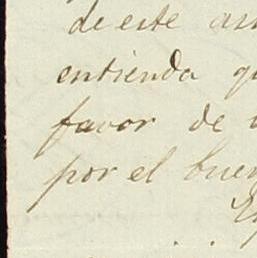 de este as
entienda q
favor de
por el buen